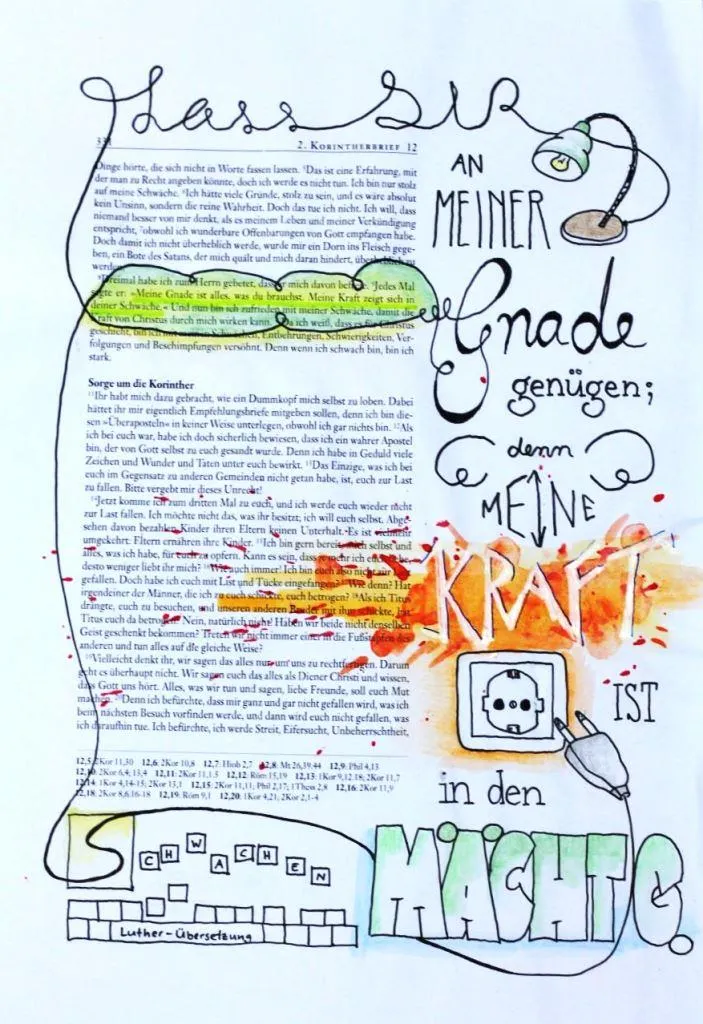 Lass DIR
331
2. KORINTHERBRIEF 12
Dinge hörte, die sich nicht in Worte fassen lassen. ⁵Das ist eine Erfahrung, mit
der man zu Recht angeben könnte, doch ich werde es nicht tun. Ich bin nur stolz
auf meine Schwäche. ⁶Ich hätte viele Gründe, stolz zu sein, und es wäre absolut
kein Unsinn, sondern die reine Wahrheit. Doch das tue ich nicht. Ich will, dass
niemand besser von mir denkt, als es meinem Leben und meiner Verkündigung
entspricht, ⁷obwohl ich wunderbare Offenbarungen von Gott empfangen habe.
Doch damit ich nicht überheblich werde, wurde mir ein Dorn ins Fleisch gege-
ben, ein Bote des Satans, der mich quält und mich daran hindert, überheblich zu
werden.
⁸Dreimal habe ich zum Herrn gebetet, dass er mich davon befreie. Jedes Mal
sagte er: »Meine Gnade ist alles, was du brauchst. Meine Kraft zeigt sich in
deiner Schwäche.« Und nun bin ich zufrieden mit meiner Schwäche, damit die
Kraft von Christus durch mich wirken kann. Da ich weiß, dass es für Christus
geschieht, bin ich mit meinen Schwächen, Entbehrungen, Schwierigkeiten, Ver-
folgungen und Beschimpfungen versöhnt. Denn wenn ich schwach bin, bin ich
stark.
Sorge um die Korinther
¹¹Ihr habt mich dazu gebracht, wie ein Dummkopf mich selbst zu loben. Dabei
hättet ihr mir eigentlich Empfehlungsbriefe mitgeben sollen, denn ich bin die-
sen »Überaposteln« in keiner Weise unterlegen, obwohl ich gar nichts bin. ¹²Als
ich bei euch war, habe ich doch sicherlich bewiesen, dass ich ein wahrer Apostel
bin, der von Gott selbst zu euch gesandt wurde. Denn ich habe in Geduld viele
Zeichen und Wunder und Taten unter euch bewirkt. ¹³Das Einzige, was ich bei
euch im Gegensatz zu anderen Gemeinden nicht getan habe, ist, euch zur Last
zu fallen. Bitte vergebt mir dieses Unrecht!
¹⁴Jetzt komme ich zum dritten Mal zu euch, und ich werde euch wieder nicht
zur Last fallen. Ich möchte nicht das, was ihr besitzt; ich will euch selbst. Abge-
sehen davon bezahlen Kinder ihren Eltern keinen Unterhalt. Es ist vielmehr
umgekehrt. Eltern ernähren ihre Kinder. ¹⁵Ich bin gern bereit, mich selbst und
alles, was ich habe, für euch zu opfern. Kann es sein, dass je mehr ich euch liebe,
desto weniger liebt ihr mich? ¹⁶Wie auch immer! Ich bin euch also nicht zur Last
gefallen. Doch habe ich euch mit List und Tücke eingefangen? ¹⁷Wie denn? Hat
irgendeiner der Männer, die ich zu euch schickte, euch betrogen? ¹⁸Als ich Titus
drängte, euch zu besuchen, und unseren anderen Bruder mit ihm schickte, hat
Titus euch da betrogen? Nein, natürlich nicht! Haben wir beide nicht denselben
Geist geschenkt bekommen? Treten wir nicht immer einer in die Fußstapfen des
anderen und tun alles auf die gleiche Weise?
¹⁹Vielleicht denkt ihr, wir sagen das alles nur, um uns zu rechtfertigen. Darum
geht es überhaupt nicht. Wir sagen euch das alles als Diener Christi und wissen,
dass Gott uns hört. Alles, was wir tun und sagen, liebe Freunde, soll euch Mut
machen. ²⁰Denn ich befürchte, dass mir ganz und gar nicht gefallen wird, was ich
beim nächsten Besuch vorfinden werde, und dann wird euch nicht gefallen, was
ich daraufhin tue. Ich befürchte, ich werde Streit, Eifersucht, Unbeherrschtheit,
12,5: 2Kor 11,30 12,6: 2Kor 10,8 12,7: Hiob 2,7 12,8: Mt 26,39.44 12,9: Phil 4,13
12,10: 2Kor 6,4; 13,4 12,11: 2Kor 11,1.5 12,12: Röm 15,19 12,13: 1Kor 9,12.18; 2Kor 11,7
12,14: 1Kor 4,14-15; 2Kor 13,1 12,15: 2Kor 11,11; Phil 2,17; 1Thess 2,8 12,16: 2Kor 11,9
12,18: 2Kor 8,6.16-18 12,19: Röm 9,1 12,20: 1Kor 4,21; 2Kor 2,1-4
AN
MEINER
Gnade
genügen;
denn
MEINE
KRAFT
IST
in den
SCHWACHEN
MÄCHTIG.
Luther-Übersetzung